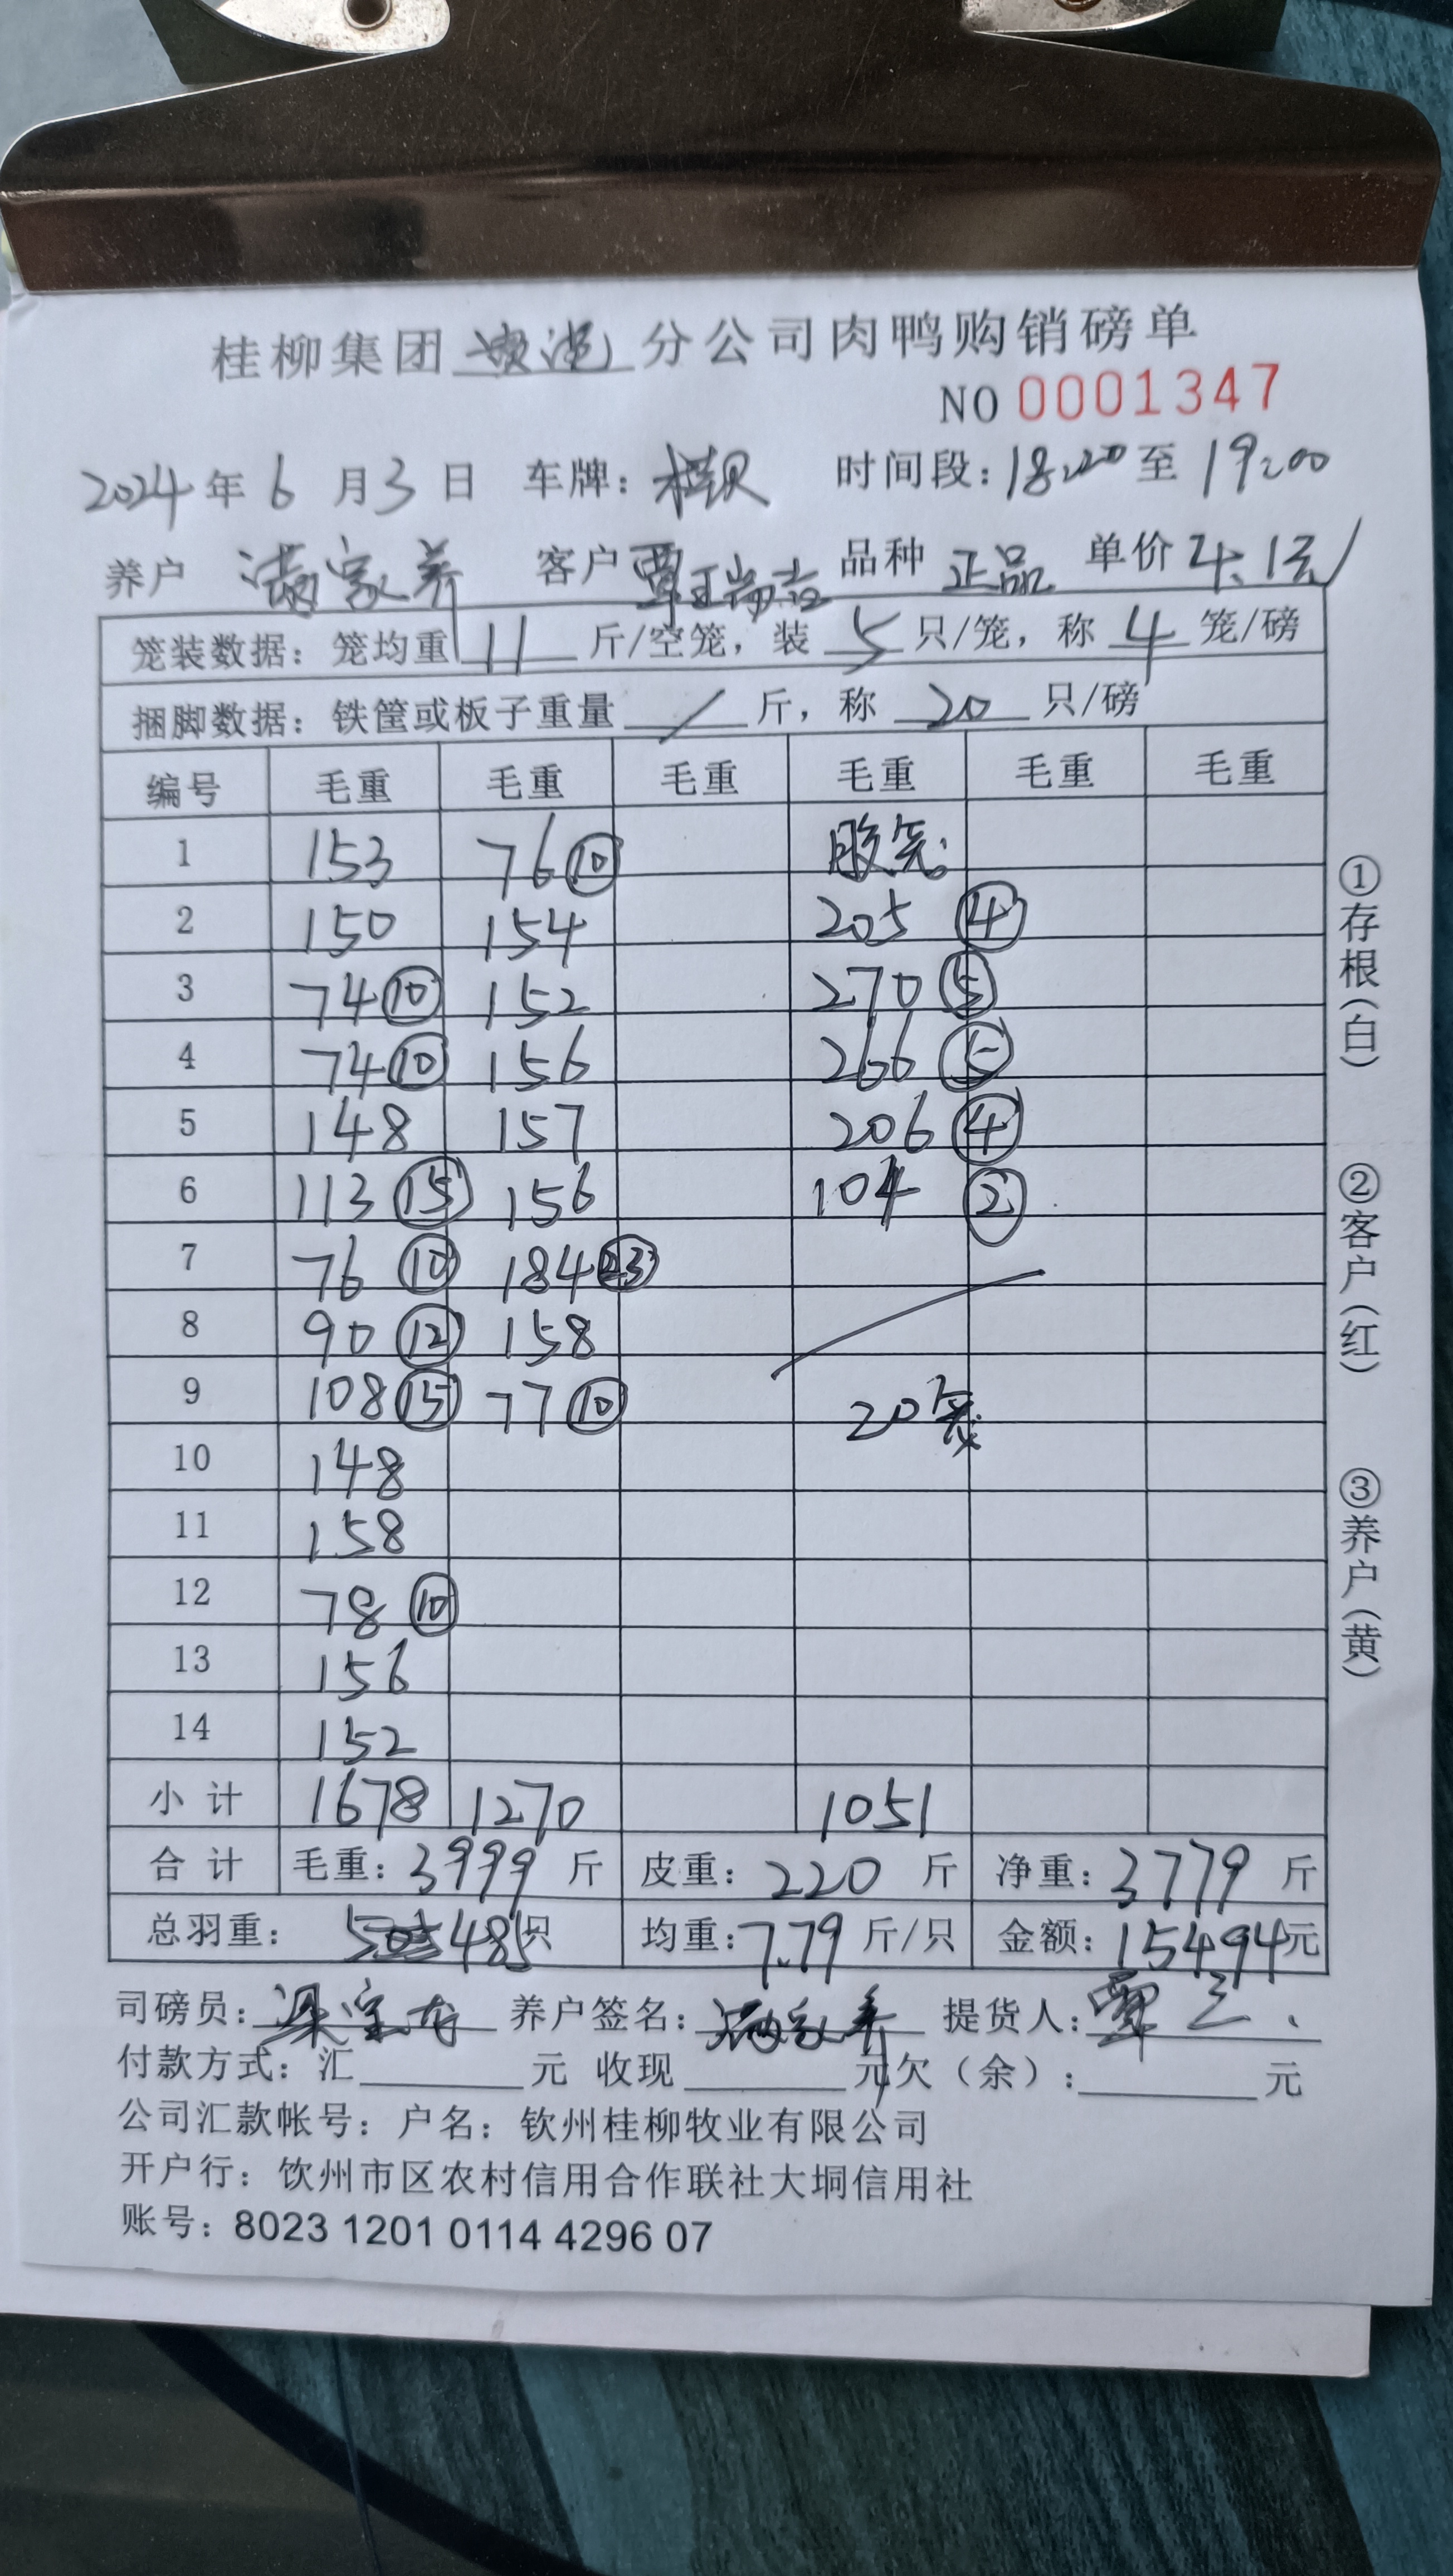 桂柳集团 分公司肉鸭购销磅单
NO 0001347
2024年6月3日 车牌: 时间段:18:20至19:00
养户 满家养 客户 覃瑞 品种 正品 单价 4.1元/
笼装数据:笼均重 11 斤/空笼,装 5 只/笼,称 4 笼/磅
捆脚数据:铁筐或板子重量 / 斤,称 20 只/磅
编号 毛重 毛重 毛重 毛重 毛重 毛重
1 153 76⑩
2 150 154 205 ④
3 74⑩ 152 270 ⑤
4 74⑩ 156 266 ⑤
5 148 157 206 ④
6 113⑮ 156 104 ②
7 76⑩ 184㉓
8 90⑫ 158
9 108⑮ 77⑩ 20笼
10 148
11 158
12 78⑩
13 156
14 152
小计 1678 1270 1051
合计 毛重:3999斤 皮重:220斤 净重:3779斤
总羽重:485只 均重:7.79斤/只 金额:15494元
司磅员: 养户签名:满家养 提货人:覃三
付款方式:汇 元 收现 元 欠(余): 元
公司汇款帐号:户名:钦州桂柳牧业有限公司
开户行:饮州市区农村信用合作联社大垌信用社
账号:8023 1201 0114 4296 07
①存根(白)
②客户(红)
③养户(黄)